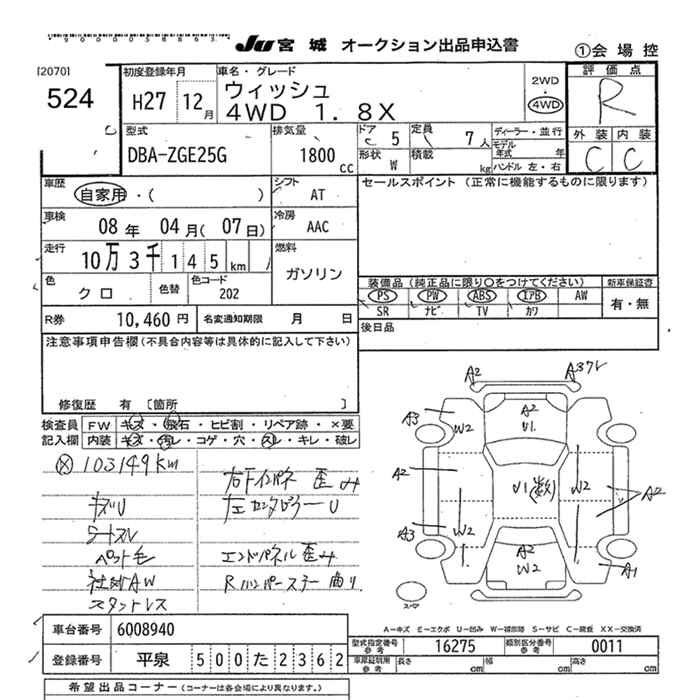 JU 宮城 オークション出品申込書
①会場控
[2070]
524
初度登録年月
H27 12月
車名・グレード
ウィッシュ
4WD 1.8X
2WD
・
4WD
評価点
R
外装 内装
C C
型式
DBA-ZGE25G
排気量
1800 cc
ドア 5
定員 7人
形状 W
積載 kg
ディーラー・並行
モデル年式 年
ハンドル 左・右
車歴
自家用・( )
シフト
AT
セールスポイント (正常に機能するものに限ります)
車検
08年 04月(07日)
冷房
AAC
走行
10万3千145km
燃料
ガソリン
色
クロ
色替
色コード
202
装備品(純正品に限り○をつけてください)
PS PW ABS エアB AW
SR ナビ TV カワ
新車保証書
有・無
R券 10,460円
名変通知期限 月 日
後日品
注意事項申告欄(不具合内容等は具体的に記入して下さい)
修復歴 有 [箇所 ]
検査員記入欄
FW キズ・飛石・ヒビ割・リペア跡・×要
内装 キズ・汚レ・コゲ・穴・スレ・キレ・破レ
ⓧ103149km
キズU
シートスレ
ペット毛
社外AW
スタッドレス
右下インパネ歪み
左センタピラーU
エンドパネル歪み
Rバンパーステー曲り
A2
A3
W2
A2
U1
A2
U1(数)
W2
A2
A3
W2
A2
W2
A1
スペア
A-キズ E-エクボ U-凹み W-補修跡 S-サビ C-腐食 XX-交換済
車台番号 6008940
登録番号 平泉 500 た 2362
型式指定番号 参考 16275
類別区分番号 参考 0011
車庫証明用 参考 長さ cm 幅 cm 高さ cm
希望出品コーナー(コーナーは各会場により異なります。)